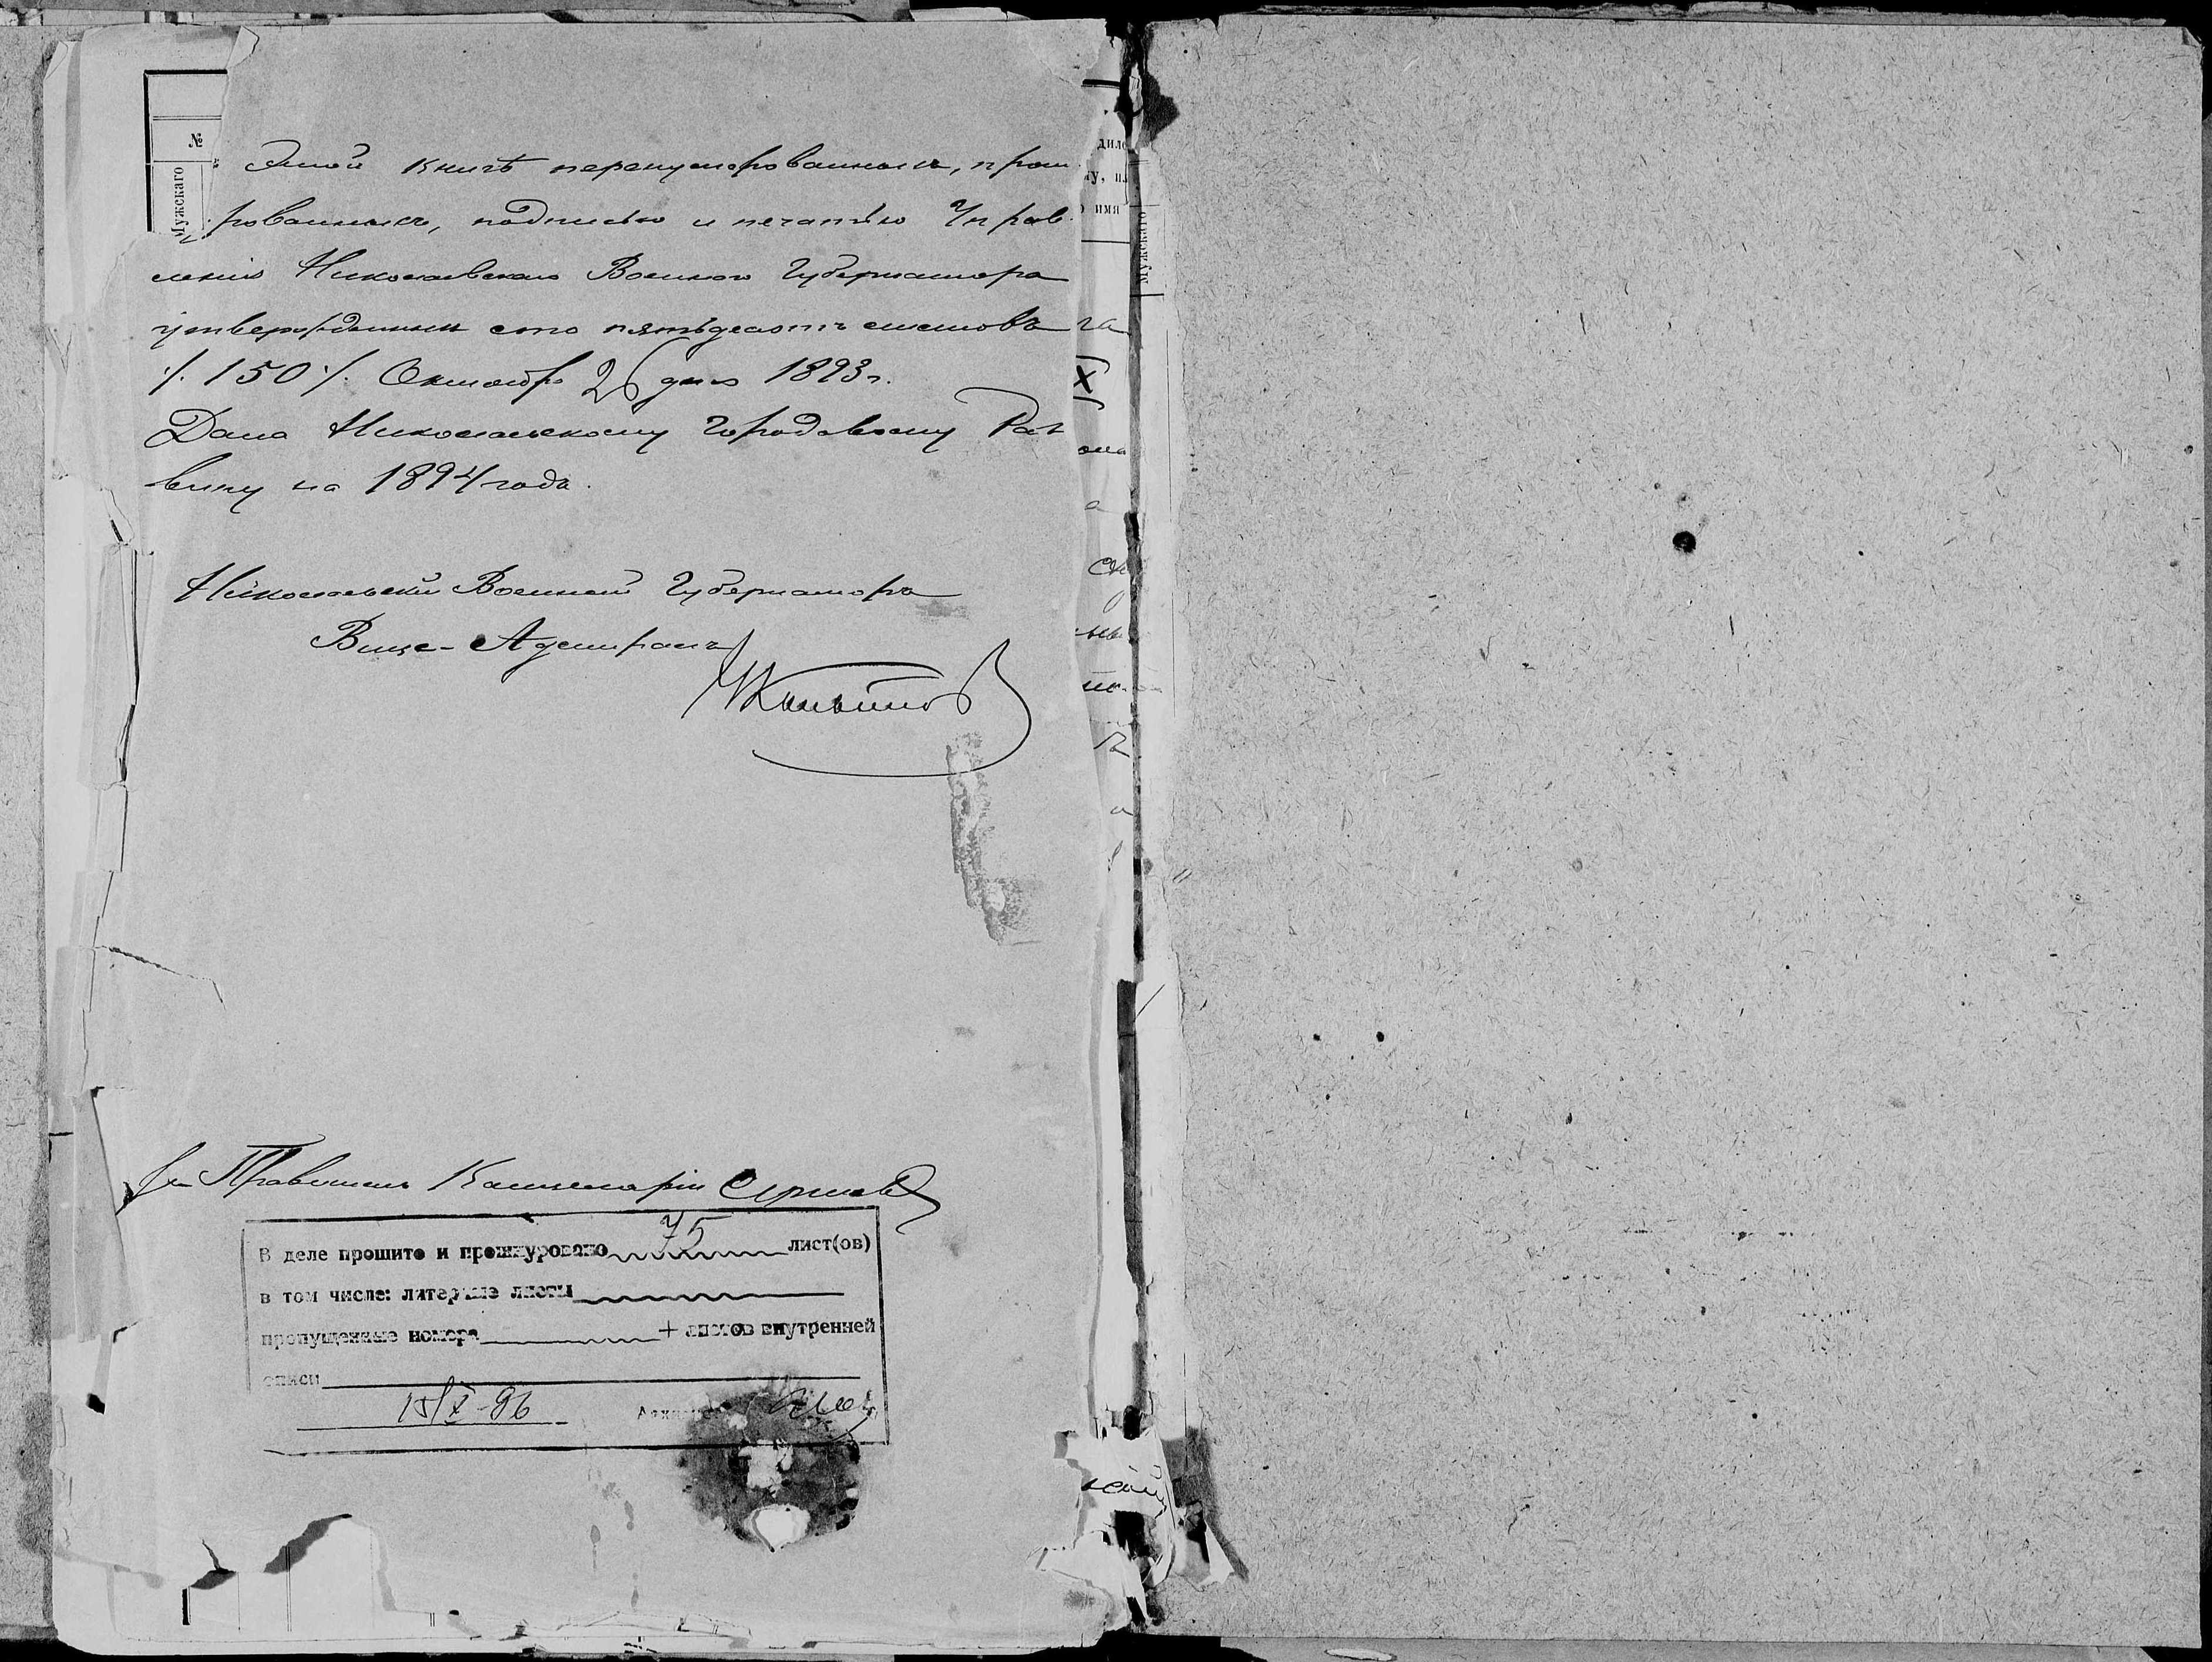 №
Мужскаго
Этой книгѣ перенумерованныхъ, прош
рованныхъ, подписью и печатью Управ
ленія Николаевскаго Военнаго Губернатора
утвержденныхъ сто пятьдесятъ листовъ
/. 150 ./. Октября 26 дня 1893 г.
Дана Николаевскому Городовому Рав
вину на 1894 годъ.
Николаевскій Военный Губернаторъ
Вице-Адмиралъ
Правитель Канцеляріи
В деле прошито и прошнуровано 75 лист(ов)
в том числе: литерные листы
пропущенные номера + листов внутренней
описи
15/X-96
дило
му, п
о имя
Мужскаго